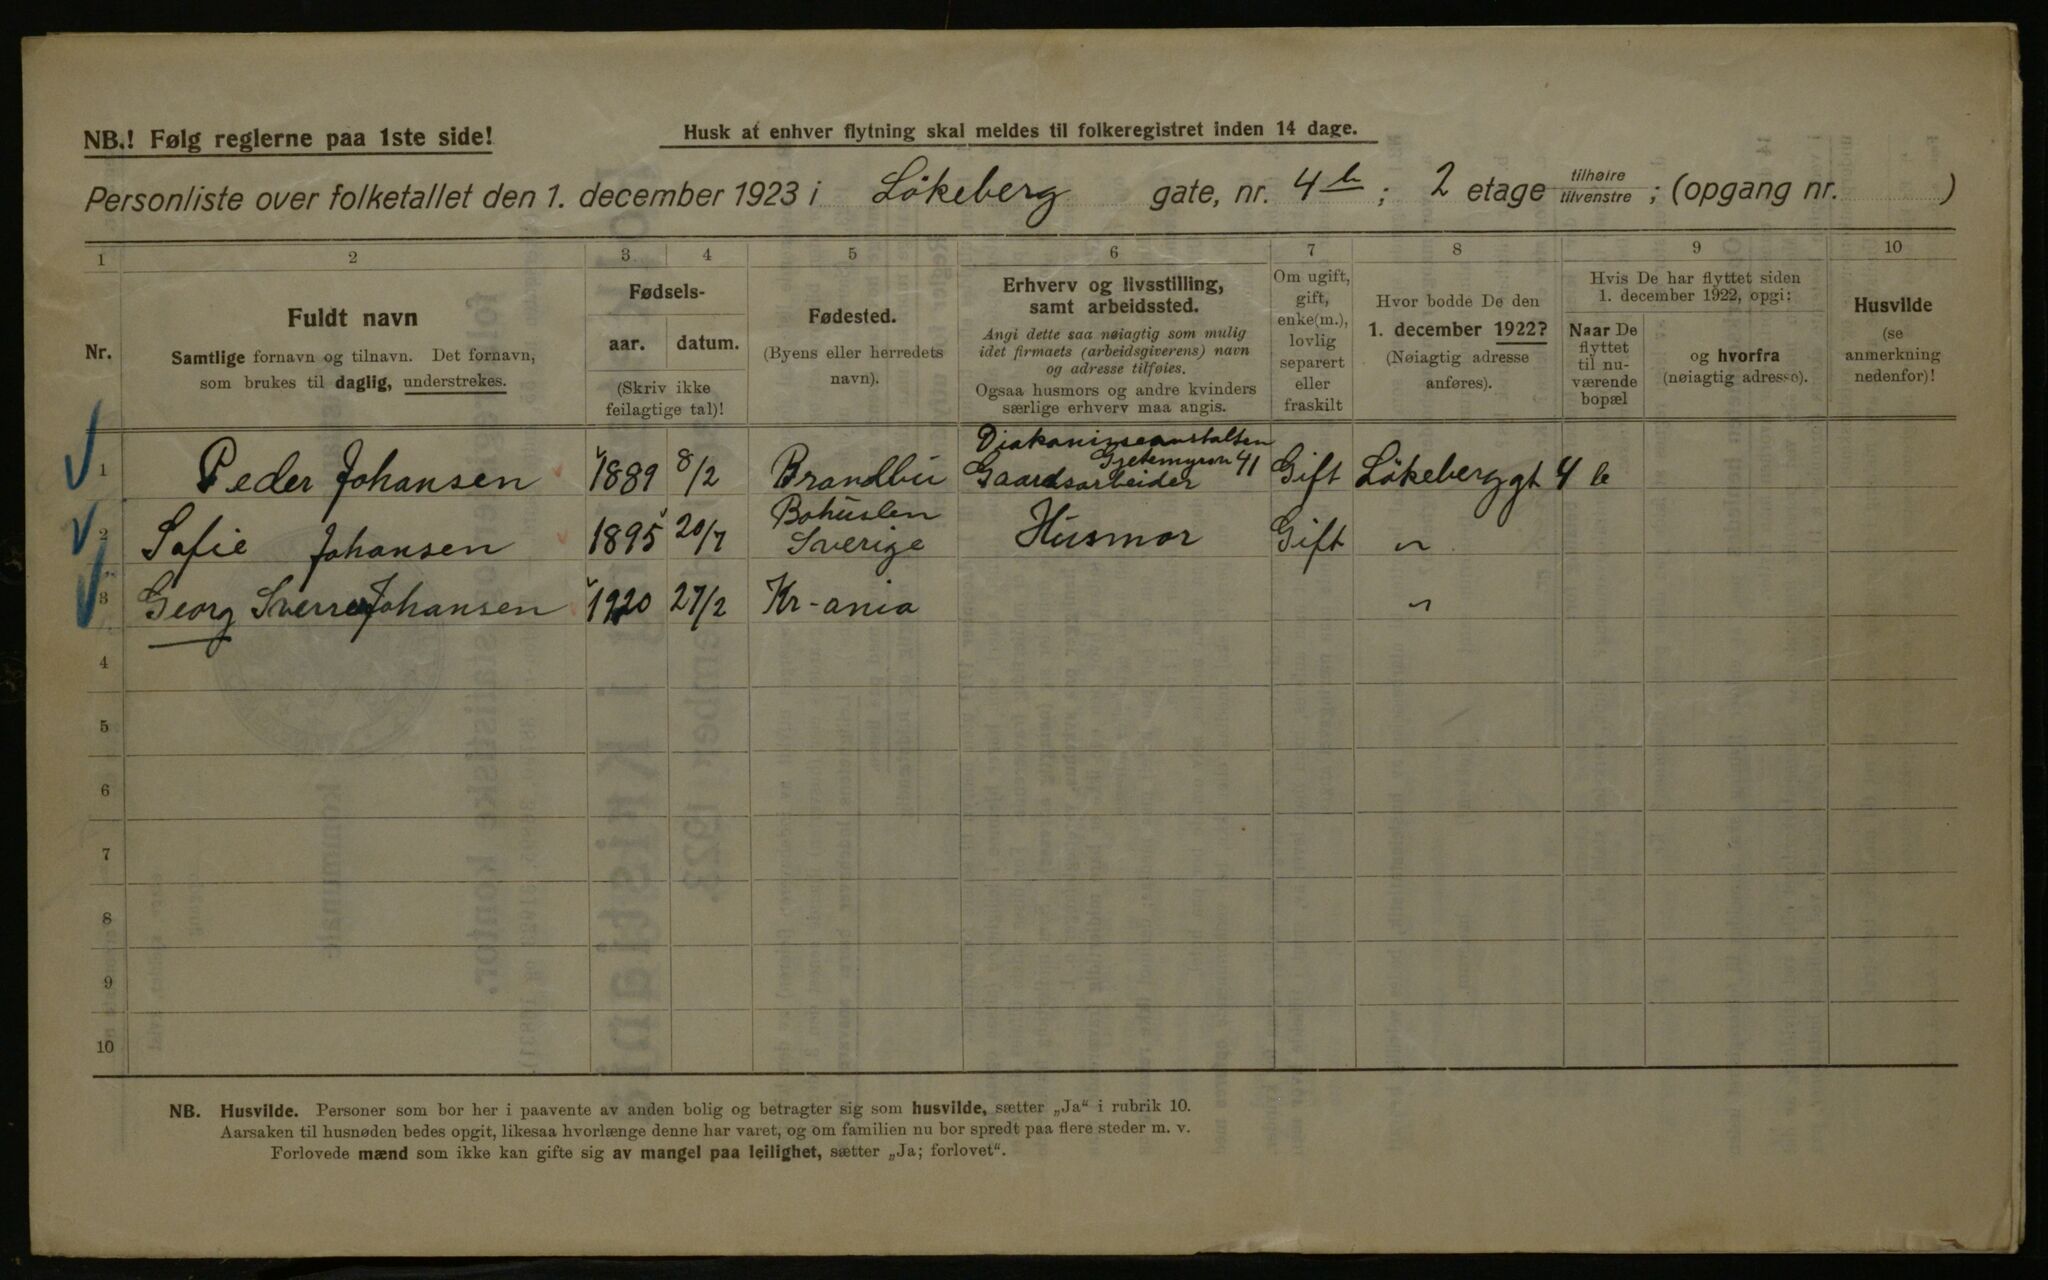 NB.! Følg reglerne paa 1ste side!
Husk at enhver flytning skal meldes til folkeregistret inden 14 dage.
Personliste over folketallet den 1. december 1923 i Lökeberg gate, nr. 4 b ; 2 etage tilhøire tilvenstre ; (opgang nr. )
1 2 3 4 5 6 7 8 9 10
Nr.
Fuldt navn
Samtlige fornavn og tilnavn. Det fornavn,
som brukes til daglig, understrekes.
Fødsels-
aar. datum.
(Skriv ikke
feilagtige tal)!
Fødested.
(Byens eller herredets
navn).
Erhverv og livsstilling,
samt arbeidssted.
Angi dette saa nøiagtig som mulig
idet firmaets (arbeidsgiverens) navn
og adresse tilføies.
Ogsaa husmors og andre kvinders
særlige erhverv maa angis.
Om ugift,
gift,
enke(m.),
lovlig
separert
eller
fraskilt
Hvor bodde De den
1. december 1922?
(Nøiagtig adresse
anføres).
Hvis De har flyttet siden
1. december 1922, opgi:
Naar De
flyttet
til nu-
værende
bopæl
og hvorfra
(nøiagtig adresse).
Husvilde
(se
anmerkning
nedenfor)!
Diakonisseanstalten
Gjetemyrsvn 41
1 Peder Johansen 1889 8/2 Brandbu Gaardsarbeider Gift Lökeberggt 4 b
Bohuslen
2 Sofie Johansen 1895 20/7 Sverige Husmor Gift "
3 Georg Sverre Johansen 1920 27/2 Kr-ania "
4
5
6
7
8
9
10
NB. Husvilde. Personer som bor her i paavente av anden bolig og betragter sig som husvilde, sætter „Ja“ i rubrik 10.
Aarsaken til husnøden bedes opgit, likesaa hvorlænge denne har varet, og om familien nu bor spredt paa flere steder m. v.
Forlovede mænd som ikke kan gifte sig av mangel paa leilighet, sætter „Ja; forlovet“.